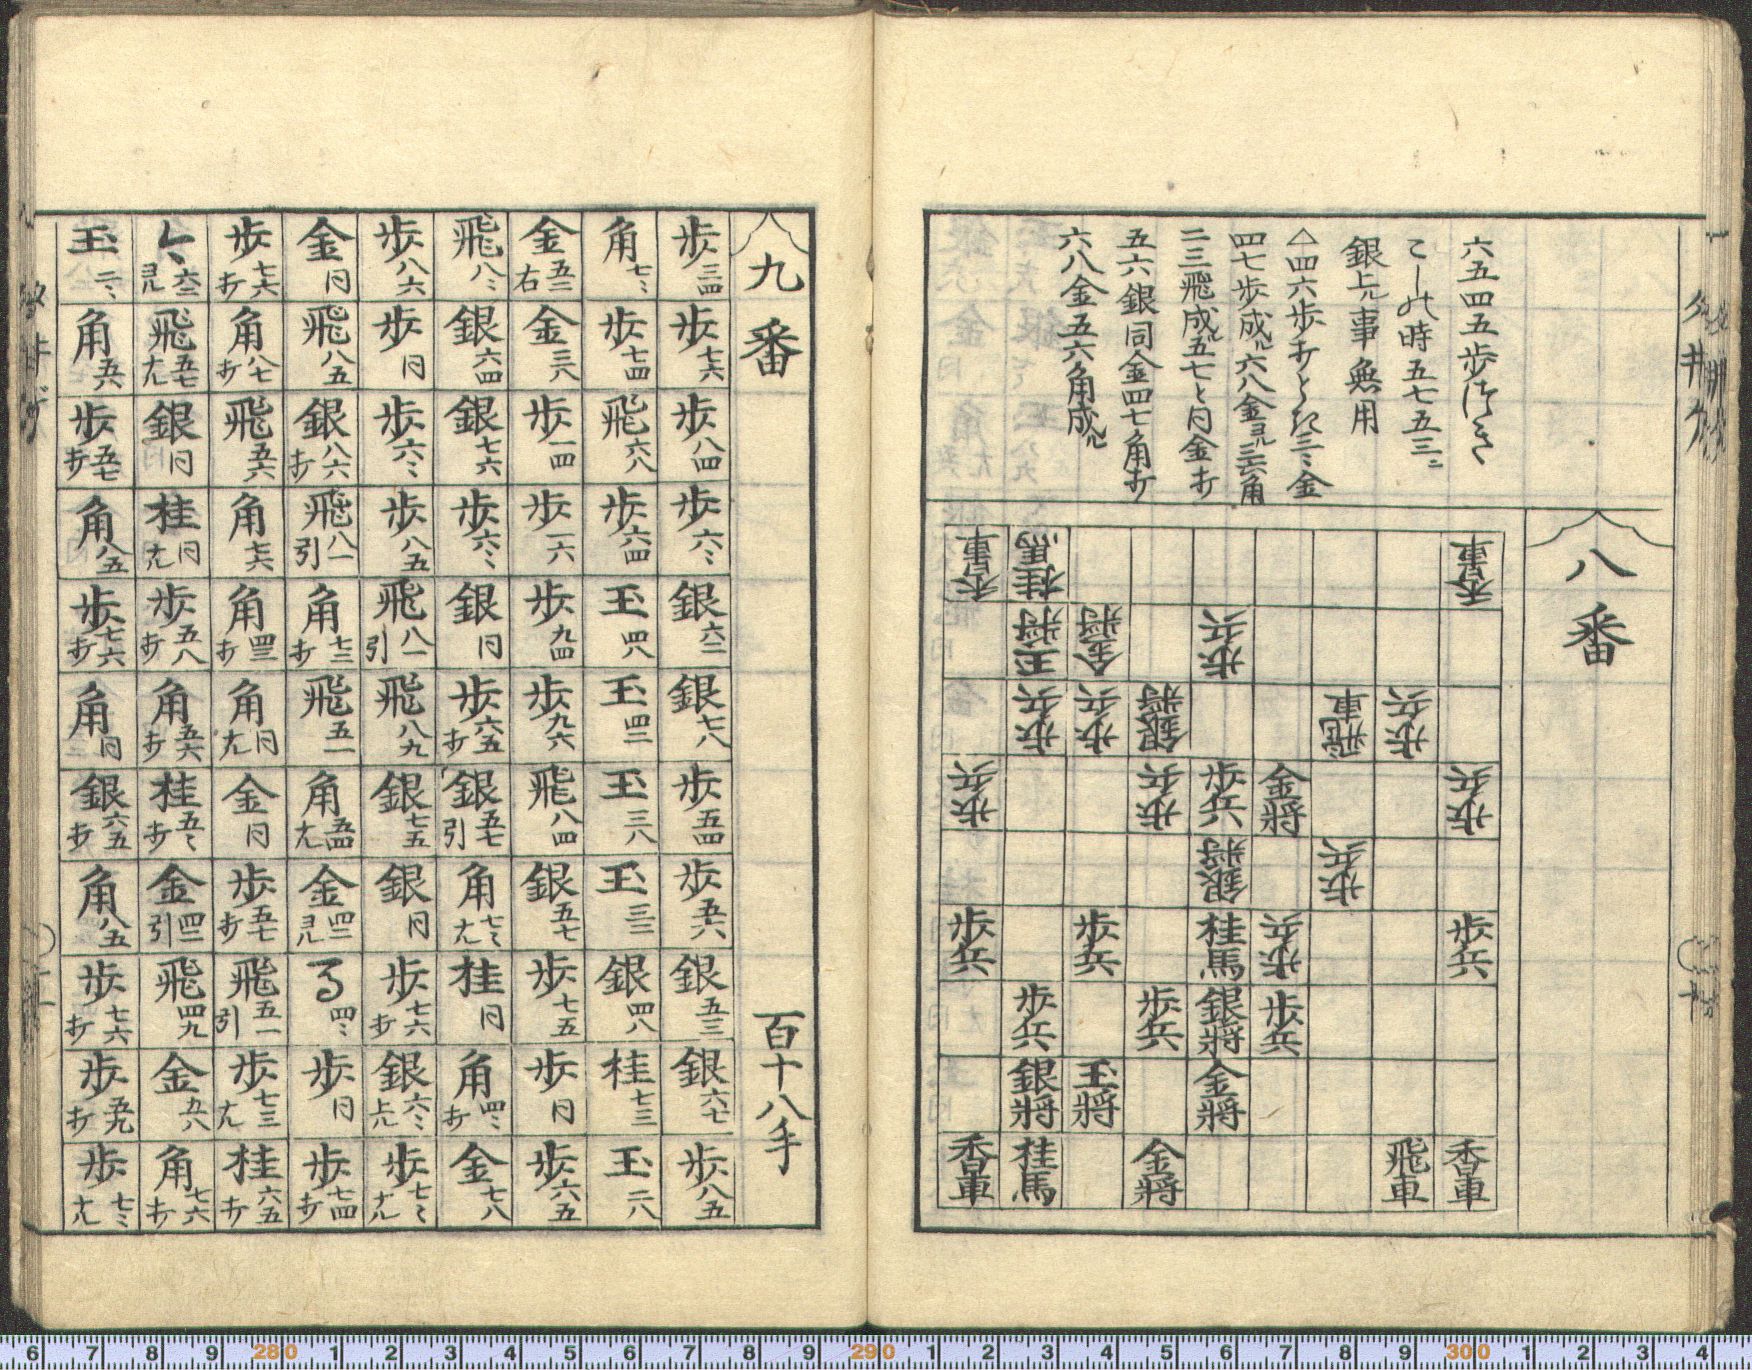 八番
六五四五歩つき
銀上ル事無用
△四六歩打とき三ミ金
四七歩成ル六八金引三六角
二三飛成ル五七と同金打
五六銀同金四七角打
六八金五六角成ル
香車 桂馬 香車
玉将 金将 歩兵
歩兵 歩兵 銀将 飛車 歩兵
歩兵 歩兵 歩兵 金将 歩兵
銀将 歩兵
歩兵 歩兵 桂馬 歩兵 歩兵
歩兵 歩兵 銀将 歩兵
銀将 玉将 金将
香車 桂馬 金将 飛車 香車
九番 百十八手
歩三四 歩七六 歩八四 歩六ミ 銀六二 銀七八 歩五四 歩五六 銀五三 銀六七 歩八五
角七ミ 歩七四 飛六八 歩六四 玉四八 玉四二 玉三八 玉三二 銀四八 桂七三 玉二八
金五二右 金三八 歩一四 歩一六 歩九四 歩九六 飛八四 銀五七 歩七五 歩同 歩六五
飛八ミ 銀六四 銀七六 歩六ミ 銀同 歩六五打 銀五七引 角七ミ九 桂同 角四ミ打 金七八
歩八六 歩同 歩六ミ 歩八五 飛八一引 飛八九 銀七五 銀同 歩七六打 銀六ミ上 歩七ミ成
金同 飛八五 銀八六打 飛八一引 角七三打 飛五一 角五四九 金四二引 る四ミ 歩同 歩七四打
歩七六打 角八七打 飛五六 角七六 角四三打 角同九 金同 歩五七打 飛五一引 歩七三九 桂六五打
と六二引 飛五七九 銀同 桂同九 歩五八打 角五六打 桂五ミ打 金四二引 飛四九 金五八 角七六打
玉二ミ 角五六 歩五七打 角八五 歩七六打 角同 銀六五打 角八五 歩七六打 歩五九打 歩七ミ九